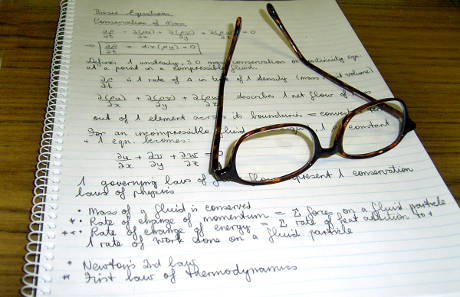 Basic Equations
Conservation of Mass
∂ρ/∂t + ∂(ρu)/∂x + ∂(ρv)/∂y + ∂(ρw)/∂z = 0
⇒ ∂ρ/∂t = -div(ρu) = 0
Defines 1 unsteady, 3D mass conservation or continuity eqn
at a point in a compressible fluid.
∂ρ/∂t is 1 rate of Δ in time of 1 density (mass volume)
∂(ρu)/∂x + ∂(ρv)/∂y + ∂(ρw)/∂z describes 1 net flow of
out of 1 element across its boundaries =
For an incompressible fluid 1 constant
+ 1 eqn. becomes:
∂u/∂x + ∂v/∂y + ∂w/∂z
1 governing law of flow represent 1 conservation
laws of physics
• Mass of a fluid is conserved
* • Rate of change of momentum = Σ forces on a fluid particle
** • Rate of change of energy = Σ rate of heat addition to +
1 rate of work done on a fluid particle
* Newton's 2nd law
** First law of thermodynamics